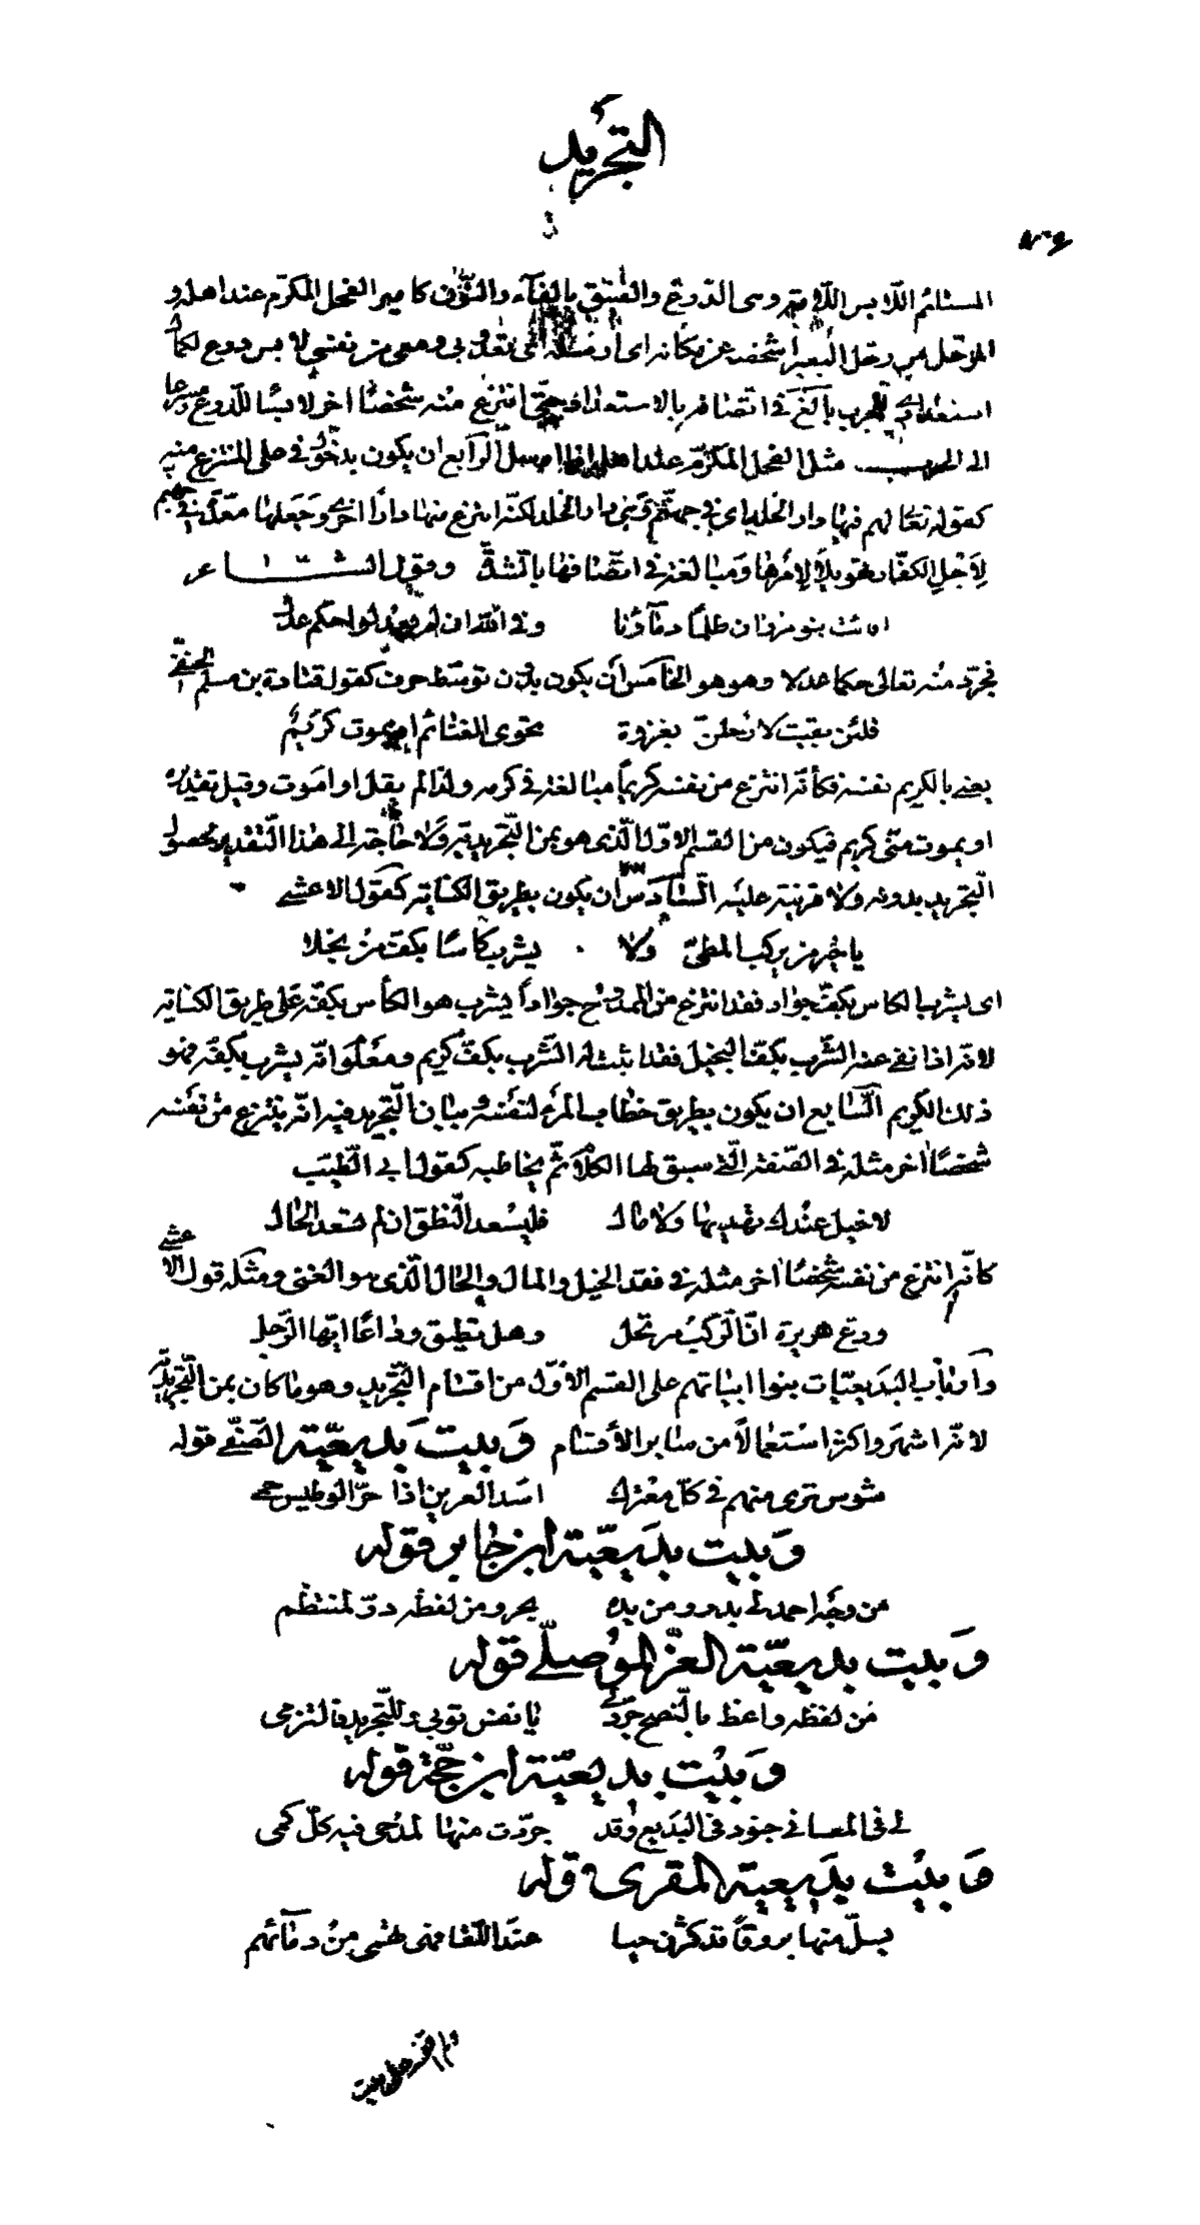 التجريد
المستلئم اللابس اللامة وهى الدروع والفنيق بالفاء والنون كامير الفحل المكرم عند اهله و
المرحل من رحل البعير اشخصه عن مكانه اى تعدو بى ومعى من نفسى لابس درع لكمال
استعداده للحرب بالغ فى اتصافه بالاستعداد حتى انتزع منه شخصا اخر لابسا للدروع مسرعا
الى الحرب مثل الفحل المكرم عند اهله الرابع ان يكون بدخول فى على المنتزع منه
كقوله تعالى لهم فيها دار الخلد اى فى جهنم وهى دار الخلد لكنه انتزع منها دارا اخرى وجعلها معدة فى جهنم
لاجل الكفار تهويلا لامرها ومبالغة فى اتصافها بالشدة وقول الشاعر
افاءت بنو مروان ظلما دماءنا وفى الله ان لم يعدلوا حكم عدل
فجرد منه تعالى حكما عدلا وهو هو الخامس ان يكون بدون توسط حرف كقول قتادة بن مسلم الحنفى
فلئن بقيت لارحلن بغزوة تحوى الغنائم او يموت كريم
يعنى بالكريم نفسه فكأنه انتزع من نفسه كريما مبالغة فى كرمه ولذا لم يقل او اموت وقيل تقديره
او يموت منى كريم فيكون من القسم الاول الذى هو بمن التجريدية ولا حاجة الى هذا التقدير لحصول
التجريد بدونه ولا قرينة عليه السادس ان يكون بطريق الكناية كقول الاعشى
يا خير من يركب المطى ولا يشرب كأسا بكف من بخلا
اى يشرب الكاس بكف جواد فقد انتزع من الممدوح جوادا يشرب هو الكأس بكفه على طريق الكناية
لانه اذا نفى عنه الشرب بكف البخيل فقد اثبت له الشرب بكف كريم ومعلوم انه يشرب بكفه فهو
ذلك الكريم السابع ان يكون بطريق خطاب المرء لنفسه وبيان التجريد فيه انه ينتزع من نفسه
شخصا اخر مثله فى الصفة التى سيق لها الكلام ثم يخاطبه كقول ابى الطيب
لا خيل عندك تهديها ولا مال فليسعد النطق ان لم تسعد الحال
كأنه انتزع من نفسه شخصا اخر مثله فى فقد الخيل والمال والحال الذى هو الغنى ومثله قول الاعشى
ودع هريرة ان الركب مرتحل وهل تطيق وداعا ايها الرجل
وارباب البديعيات بنوا ابياتهم على القسم الاول من اقسام التجريد وهو ما كان بمن التجريدية
لانه اشهر واكثر استعمالا من سائر الاقسام وبيت بديعية الصفى قوله
شوس ترى منهم فى كل معترك اسد العرين اذا حر الوطيس حمى
وبيت بديعية ابن جابر قوله
من وجه احمد لى بدر ومن يده بحر ومن لفظه در لمنتظم
وبيت بديعية العز الموصلى قوله
من لفظه واعظ بالنصح جرد لى يا نفس توبى وللتجريد فالتزمى
وبيت بديعية ابن حجة قوله
لى فى المعانى جنود فى البديع وقد جردت منها لمدحى فيه كل كمى
وبيت بديعية المقرى قوله
يسل منها بروقا قد كثرن حيا عند اللقا فهى تهمى من دمائهم